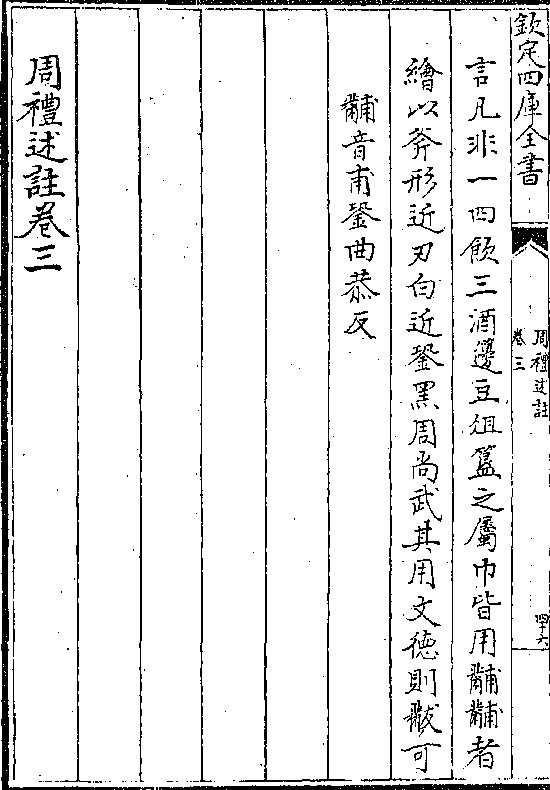 欽定四庫全書
周禮述註
卷三
四十六
言凡非一四飲三酒籩豆俎簋之屬巾皆用黼黼者
繪以斧形近刃白近銎黑周尚武其用文德則黻可
黼音甫銎曲恭反
周禮述註卷三